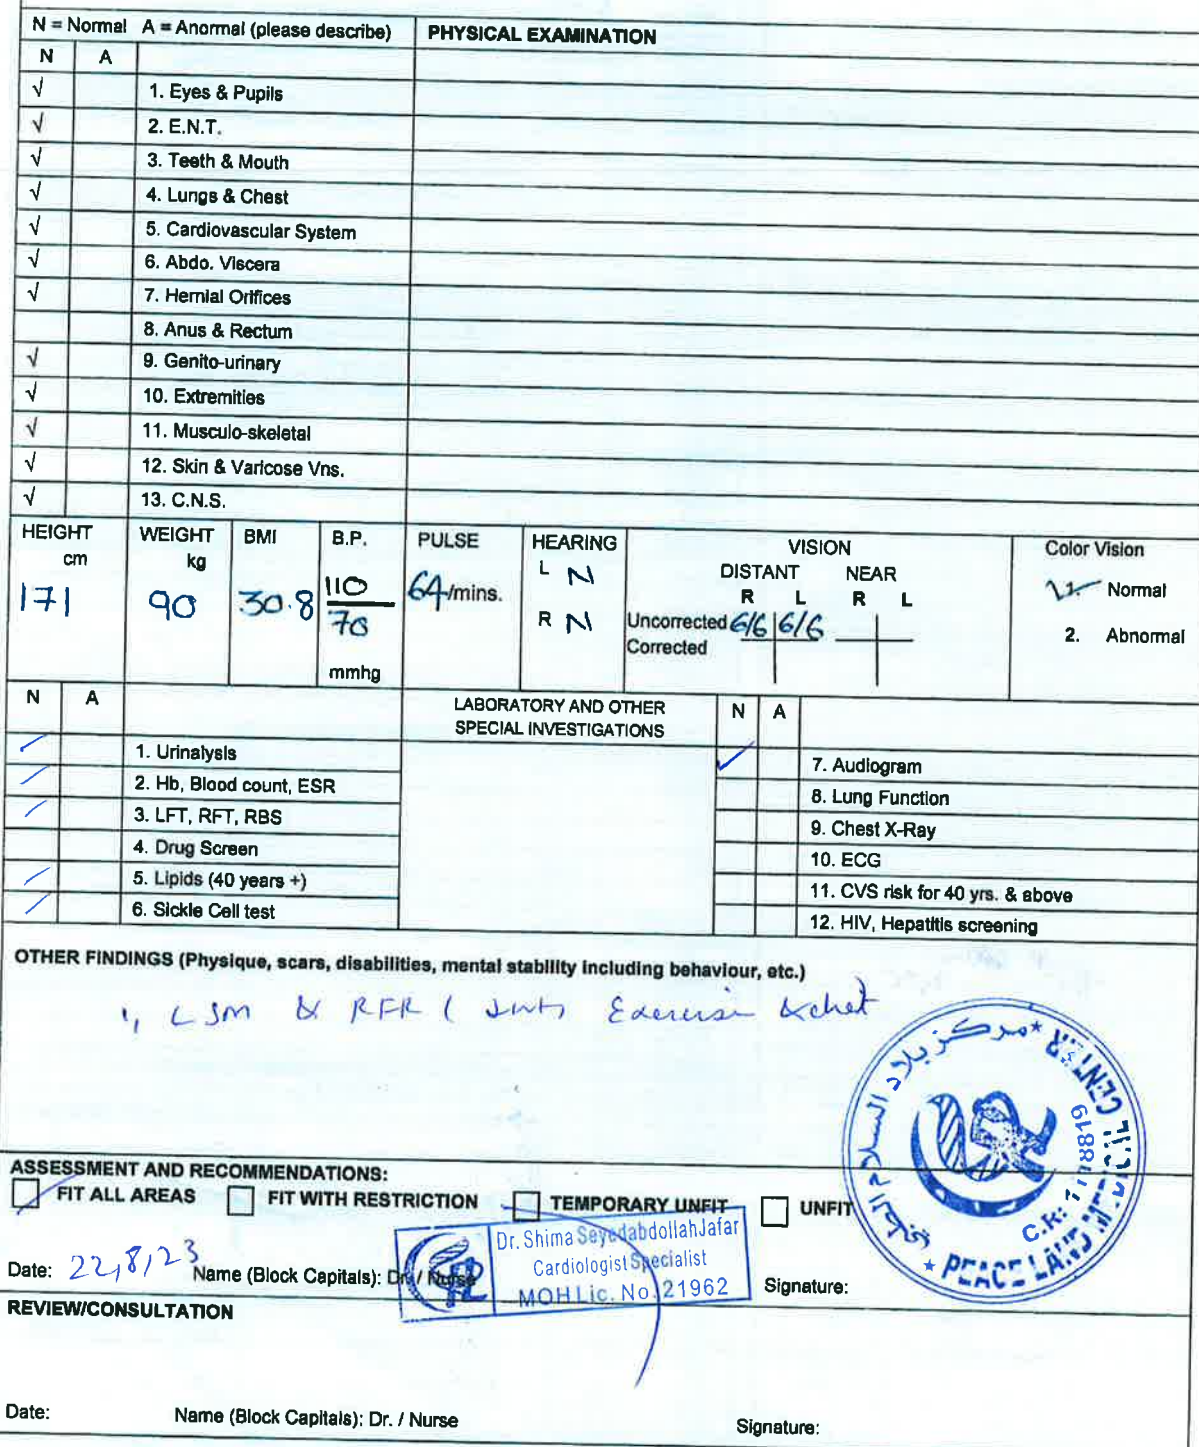 N = Normal A = Anormal (please describe) PHYSICAL EXAMINATION
N A
√ 1. Eyes & Pupils
√ 2. E.N.T.
√ 3. Teeth & Mouth
√ 4. Lungs & Chest
√ 5. Cardiovascular System
√ 6. Abdo. Viscera
√ 7. Hernial Orifices
8. Anus & Rectum
√ 9. Genito-urinary
√ 10. Extremities
√ 11. Musculo-skeletal
√ 12. Skin & Varicose Vns.
√ 13. C.N.S.
HEIGHT cm 171
WEIGHT kg 90
BMI 30.8
B.P. 110 / 70 mmhg
PULSE 64/mins.
HEARING
L N
R N
VISION
DISTANT NEAR
R L R L
Uncorrected 6/6 6/6
Corrected
Color Vision
1. Normal
2. Abnormal
N A LABORATORY AND OTHER SPECIAL INVESTIGATIONS N A
✓ 1. Urinalysis
✓ 2. Hb, Blood count, ESR
✓ 3. LFT, RFT, RBS
4. Drug Screen
✓ 5. Lipids (40 years +)
✓ 6. Sickle Cell test
✓ 7. Audiogram
8. Lung Function
9. Chest X-Ray
10. ECG
11. CVS risk for 40 yrs. & above
12. HIV, Hepatitis screening
OTHER FINDINGS (Physique, scars, disabilities, mental stability including behaviour, etc.)
LSM & RFR ( Exercise & diet
مركز بلاد السلام الطبي
PEACE LAND MEDICAL CENTER
C.R:
ASSESSMENT AND RECOMMENDATIONS:
FIT ALL AREAS FIT WITH RESTRICTION TEMPORARY UNFIT UNFIT
Dr. Shima SeyedabdollahJafar
Cardiologist Specialist
MOH Lic. No. 21962
Date: 22/8/23 Name (Block Capitals): Dr. / Nurse Signature:
REVIEW/CONSULTATION
Date: Name (Block Capitals): Dr. / Nurse Signature: